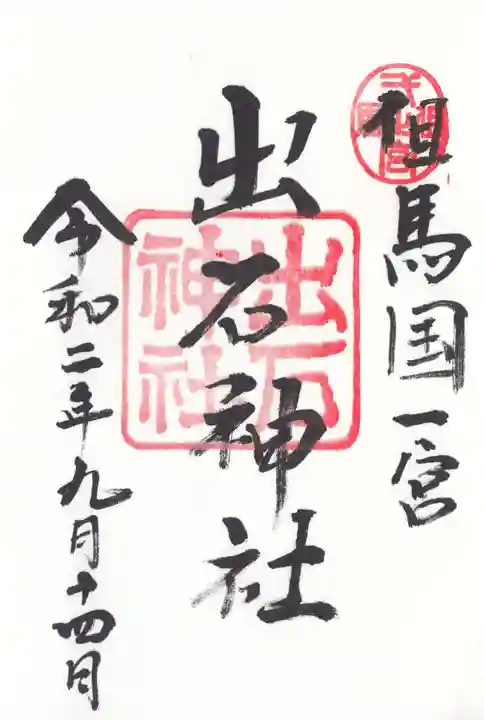 但馬国一宮
出石神社
出石神社
令和二年九月十四日